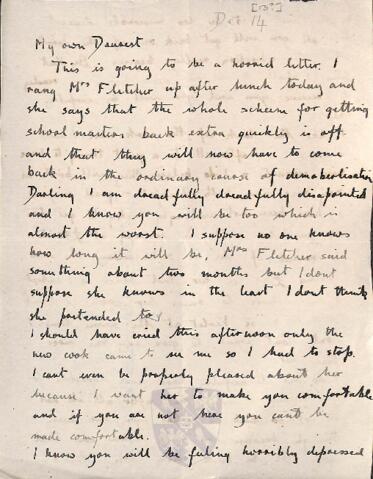 [18?]
Dec 14
My own Dearest
This is going to be a horrid letter. I
rang Mrs Fletcher up after lunch today and
she says that the whole scheme for getting
schoolmasters back extra quickly is off
and that they will now have to come
back in the ordinary course of demobilisation
Darling I am dreadfully dreadfully disappointed
and I know you will be too which is
almost the worst. I suppose no one knows
how long it will be, Mrs Fletcher said
something about two months but I dont
suppose she knows in the least I dont think
she pretended to.
I should have cried this afternoon only the
new cook came to see me so I had to stop.
I cant even be properly pleased about her
because I want her to make you comfortable
and if you are not here you cant be
made comfortable.
I know you will be feeling horribly depressed